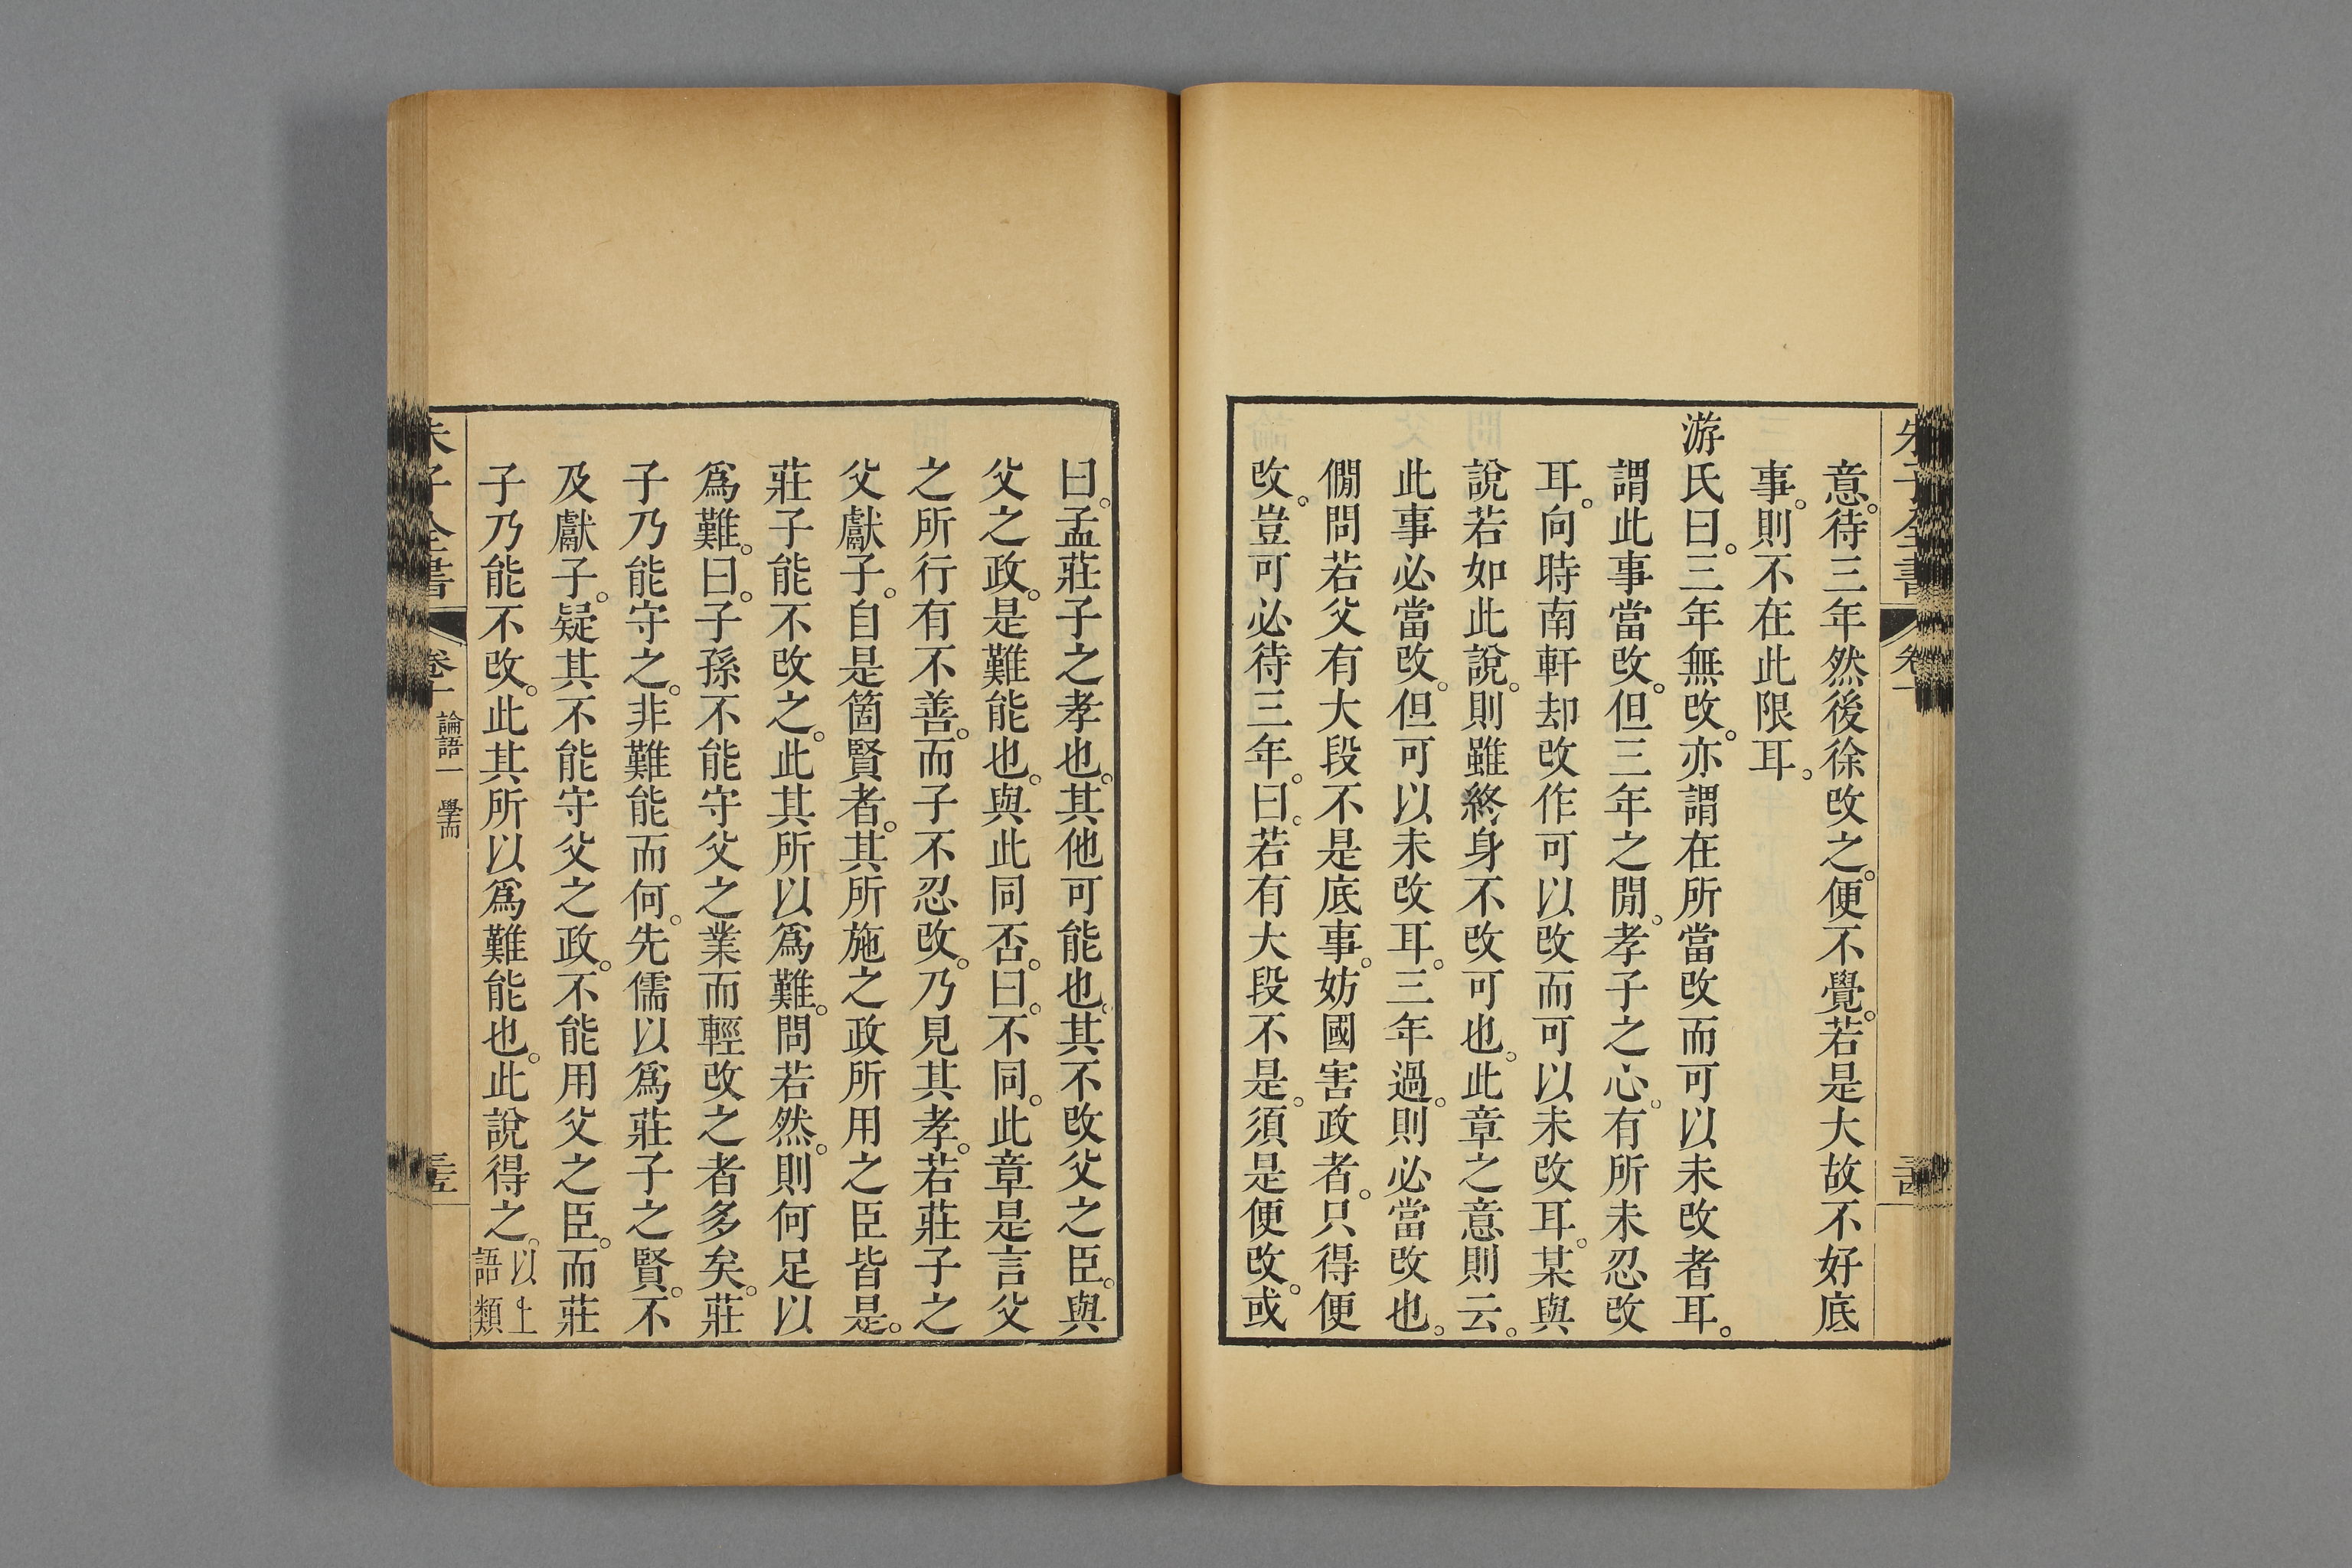 意。待三年然後徐改之。便不覺。若是大故不好底
事。則不在此限耳。
游氏曰。三年無改。亦謂在所當改而可以未改者耳。
謂此事當改。但三年之閒。孝子之心。有所未忍改
耳。向時南軒却改作可以改而可以未改耳。某與
說若如此說。則雖終身不改可也。此章之意則云。
此事必當改。但可以未改耳。三年過。則必當改也。
僩問若父有大段不是底事。妨國害政者。只得便
改。豈可必待三年。曰。若有大段不是。須是便改。或
曰。孟莊子之孝也。其他可能也。其不改父之臣。與
父之政。是難能也。與此同否。曰。不同。此章是言父
之所行有不善。而子不忍改。乃見其孝。若莊子之
父獻子。自是箇賢者。其所施之政所用之臣皆是。
莊子能不改之。此其所以爲難。問若然。則何足以
爲難。曰。子孫不能守父之業而輕改之者多矣。莊
子乃能守之。非難能而何。先儒以爲莊子之賢。不
及獻子。疑其不能守父之政。不能用父之臣。而莊
子乃能不改。此其所以爲難能也。此說得之。以上
語類
論語一 學而